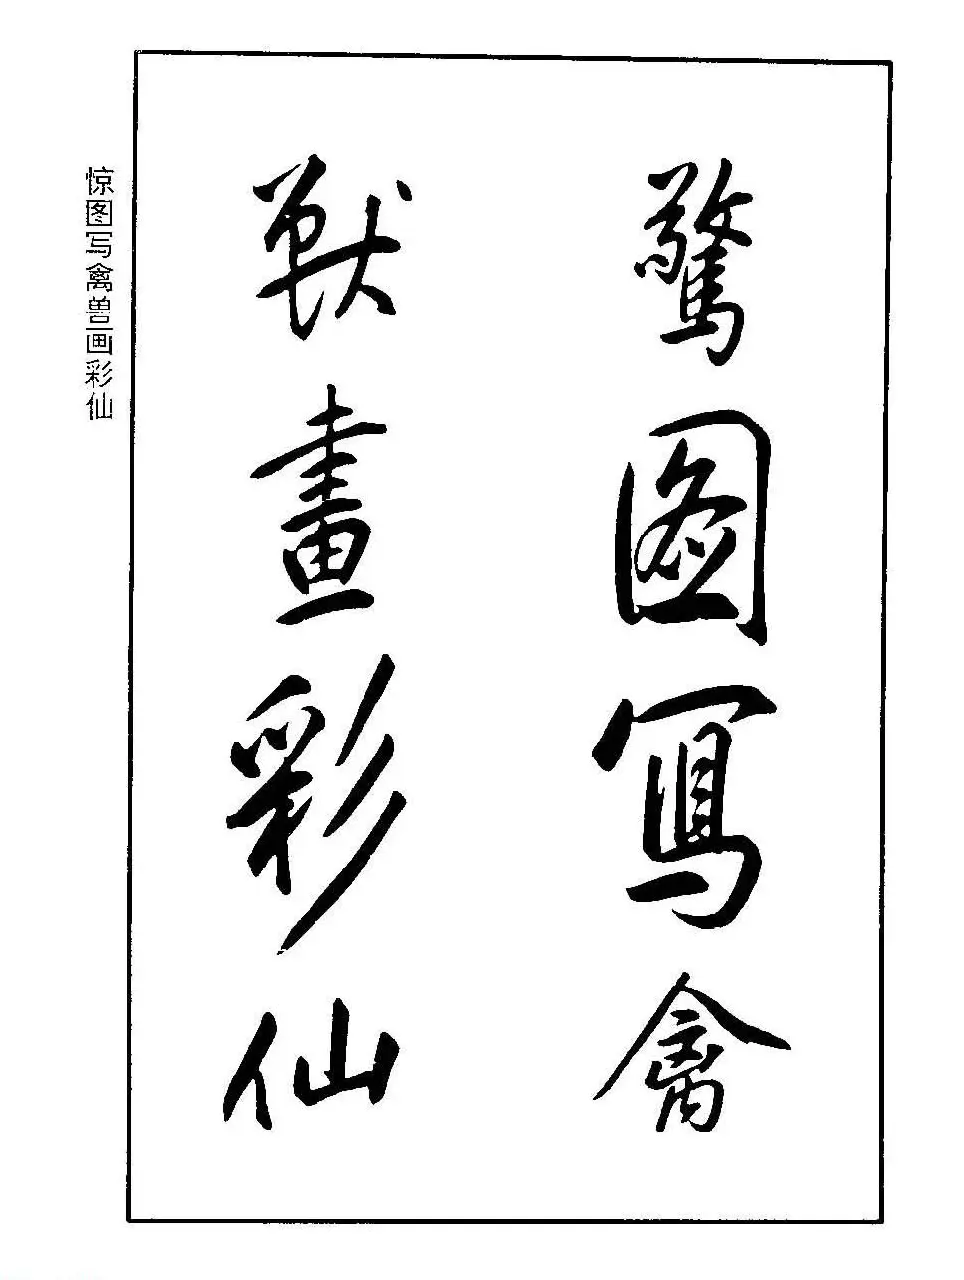 驚圖寫禽
獸畫彩仙
惊图写禽兽画彩仙